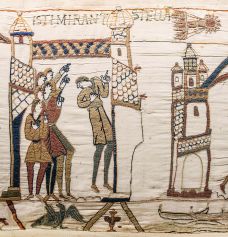 ISTIMIRANT STELLA